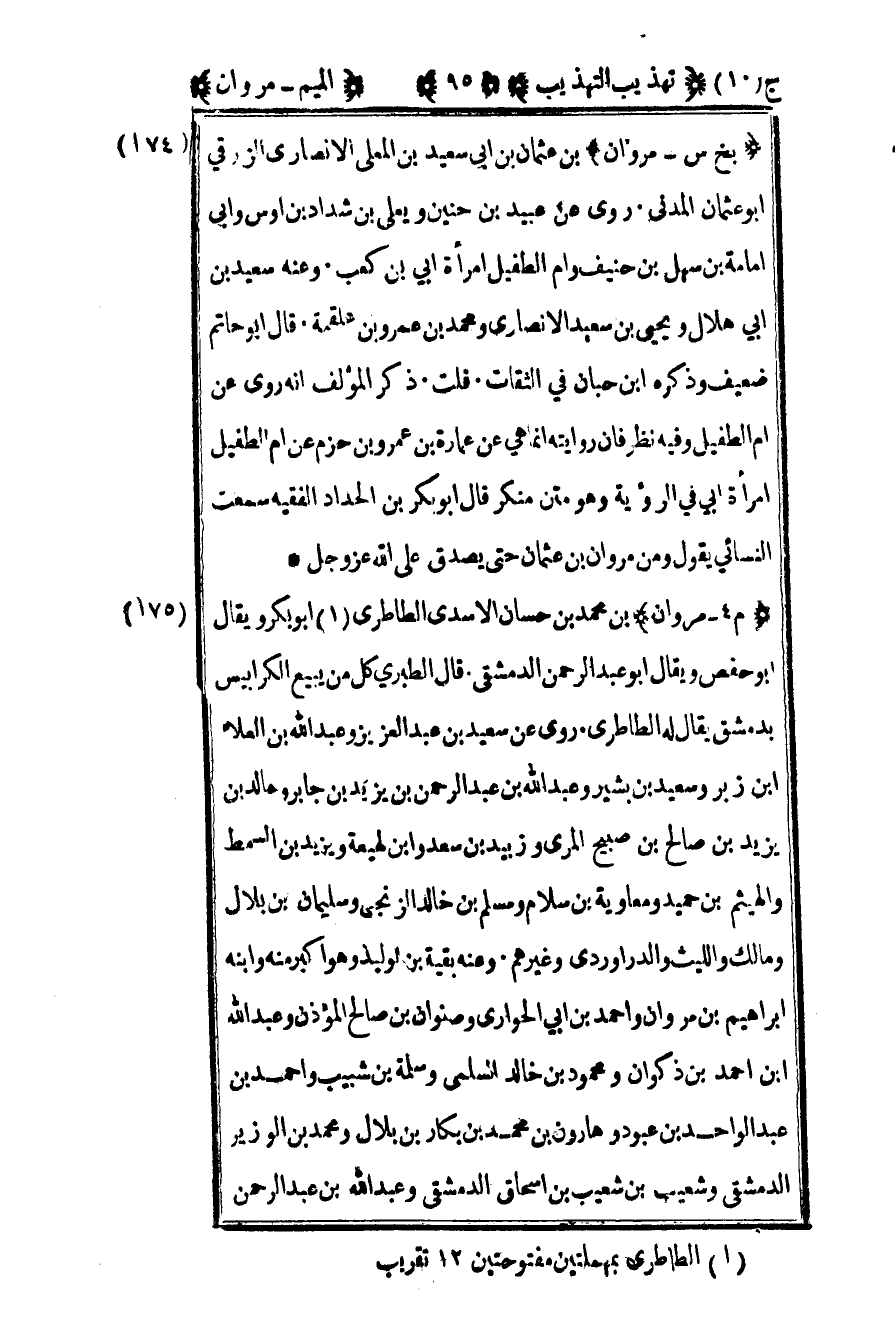 ج (١٠) ﴿ تهذيب التهذيب ﴾ ﴿ ٩٥ ﴾ ﴿ الميم - مروان ﴾
﴿ بخ س - مروان ﴾ بن عثمان بن ابي سعيد بن المعلى الانصارى الزرقي (١٧٤)
ابوعثمان المدنى ٠ روى عن عبيد بن حنين ويعلى بن شداد بن اوس وابي
امامة بن سهل بن حنيف وام الطفيل امرأة ابي بن كعب ٠ وعنه سعيد بن
ابي هلال ويحيى بن سعيد الانصارى ومحمد بن عمرو بن علقمة ٠ قال ابوحاتم
ضعيف وذكره ابن حبان في الثقات ٠ قلت ٠ ذكر المؤلف انه روى عن
ام الطفيل وفيه نظر فان روايته انماهي عن عمارة بن عمرو بن حزم عن ام الطفيل
امرأة ابي في الرؤية وهو متن منكر قال ابوبكر بن الحداد الفقيه سمعت
النسائي يقول ومن مروان بن عثمان حتى يصدق على الله عزوجل *
﴿ م٤ - مروان ﴾ بن محمد بن حسان الاسدى الطاطرى (١) ابوبكر ويقال (١٧٥)
ابوحفص ويقال ابوعبدالرحمن الدمشقى ٠ قال الطبري كل من يبيع الكرابيس
بدمشق يقال له الطاطرى ٠ روى عن سعيد بن عبدالعزيز وعبدالله بن العلاء
ابن زبر وسعيد بن بشير وعبدالله بن عبدالرحمن بن يزيد بن جابر وخالد بن
يزيد بن صالح بن صبيح المرى وزبيد بن سعد وابن لهيعة ويزيد بن السمط
والهيثم بن حميد ومعاوية بن سلام ومسلم بن خالد الزنجى وسليمان بن بلال
ومالك والليث والدراوردى وغيرهم ٠ وعنه بقية بن الوليد وهو اكبر منه وابنه
ابراهيم بن مروان واحمد بن ابي الحوارى وصفوان بن صالح المؤذن وعبدالله
ابن احمد بن ذكوان ومحمود بن خالد السلمى وسلمة بن شبيب واحمد بن
عبدالواحد بن عبود وهارون بن محمد بن بكار بن بلال ومحمد بن الوزير
الدمشقى وشعيب بن شعيب بن اسحاق الدمشقى وعبدالله بن عبدالرحمن
(١) الطاطرى بمهملتين مفتوحتين ١٢ تقريب